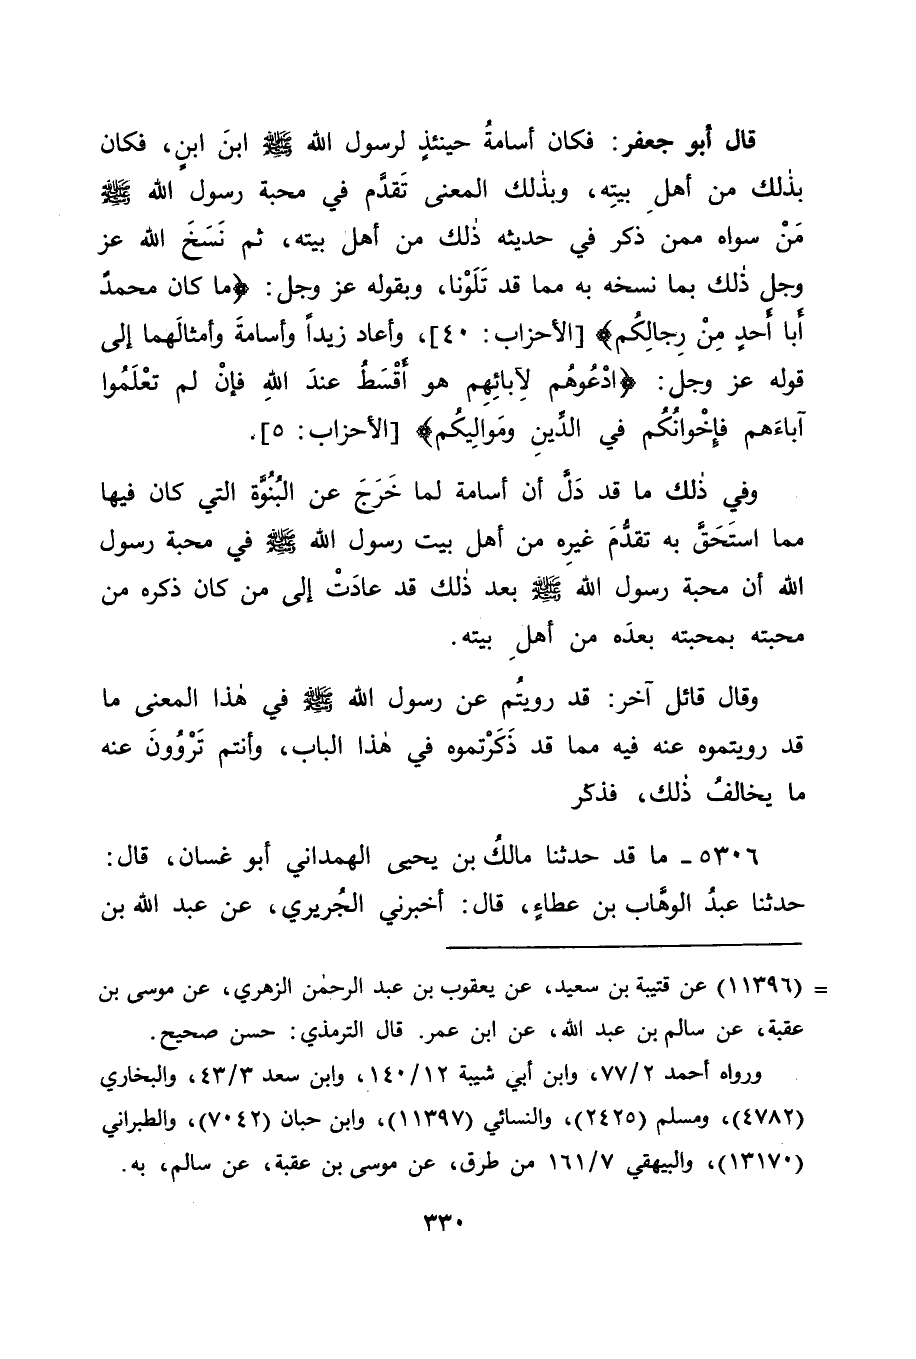 قال أبو جعفر: فكان أسامةُ حينئذٍ لرسول الله ﷺ ابنَ ابنٍ، فكان
بذٰلك من أهلِ بيتِه، وبذٰلك المعنى تَقدَّم في محبة رسول الله ﷺ
مَنْ سواه ممن ذكر في حديثه ذٰلك من أهلِ بيته، ثم نَسَخَ الله عز
وجل ذٰلك بما نسخه به مما قد تَلَوْنا، وبقوله عز وجل: ﴿ما كان محمدٌ
أَبا أَحدٍ مِنْ رِجالِكُم﴾ [الأحزاب: ٤٠]، وأعاد زيداً وأسامةَ وأمثالَهما إلى
قوله عز وجل: ﴿ادْعُوهُم لآِبائِهِم هو أَقْسَطُ عندَ اللهِ فإنْ لم تعْلَمُوا
آباءَهم فإِخْوانُكُم في الدِّينِ ومَوالِيكُم﴾ [الأحزاب: ٥].
وفي ذٰلك ما قد دَلَّ أن أسامة لما خَرَجَ عن البُنُوَّة التي كان فيها
مما استَحَقَّ به تقدُّمَ غيرِه من أهل بيت رسول الله ﷺ في محبة رسول
الله أن محبة رسول الله ﷺ بعد ذٰلك قد عادَتْ إلى من كان ذكره من
محبته بمحبته بعدَه من أهلِ بيته.
وقال قائل آخر: قد رويتُم عن رسول الله ﷺ في هٰذا المعنى ما
قد رويتموه عنه فيه مما قد ذَكَرْتموه في هٰذا الباب، وأنتم تَرْوُونَ عنه
ما يخالفُ ذٰلك، فذكر
٥٣٠٦ - ما قد حدثنا مالكُ بن يحيى الهمداني أبو غسان، قال:
حدثنا عبدُ الوهَّاب بن عطاءٍ، قال: أخبرني الجُريري، عن عبد الله بن
= (١١٣٩٦) عن قتيبة بن سعيد، عن يعقوب بن عبد الرحمٰن الزهري، عن موسى بن
عقبة، عن سالم بن عبد الله، عن ابن عمر. قال الترمذي: حسن صحيح.
ورواه أحمد ٧٧/٢، وابن أبي شيبة ١٤٠/١٢، وابن سعد ٤٣/٣، والبخاري
(٤٧٨٢)، ومسلم (٢٤٢٥)، والنسائي (١١٣٩٧)، وابن حبان (٧٠٤٢)، والطبراني
(١٣١٧٠)، والبيهقي ١٦١/٧ من طرق، عن موسى بن عقبة، عن سالم، به.
٣٣٠